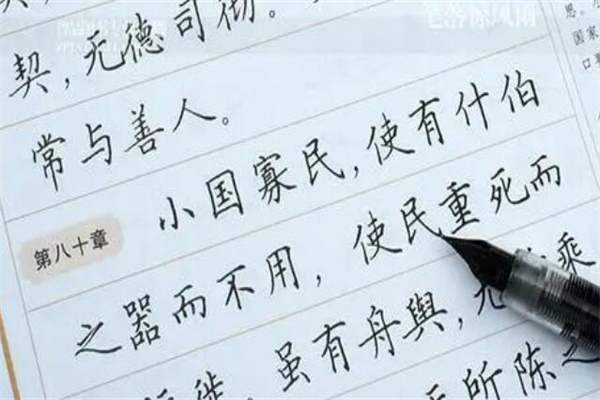 笔落惊风雨
契，无德司彻。
常与善人。
小国寡民，使有什伯
第八十章
之器而不用，使民重死而
徙，虽有舟舆，无乘
所陈之
国家